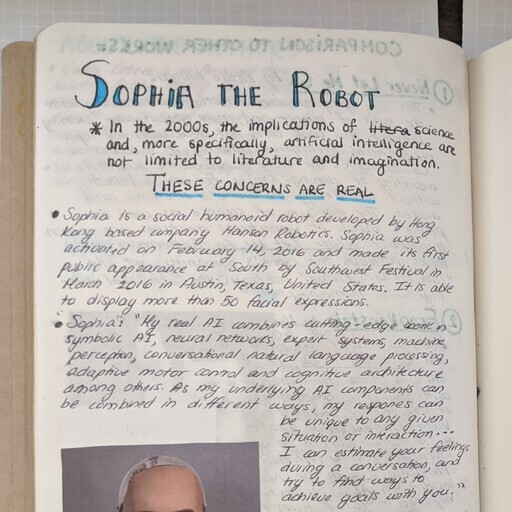 COMPARISON TO OTHER WORKS:
① Never Let Me
SOPHIA THE ROBOT
* In the 2000s, the implications of litera science
and, more specifically, artificial intelligence are
not limited to literature and imagination.
THESE CONCERNS ARE REAL
• Sophia is a social humanoid robot developed by Hong
Kong based company Hanson Robotics. Sophia was
activated on February 14, 2016 and made its first
public appearance at South by Southwest Festival in
March 2016 in Austin, Texas, United States. It is able
to display more than 50 facial expressions.
• Sophia: "My real AI combines cutting-edge work in
symbolic AI, neural networks, expert systems, machine
perception, conversational natural language processing,
adaptive motor control and cognitive architecture
among others. As my underlying AI components can
be combined in different ways, my respones can
be unique to any given
situation or interaction...
I can estimate your feelings
during a conversation, and
try to find ways to
achieve goals with you."